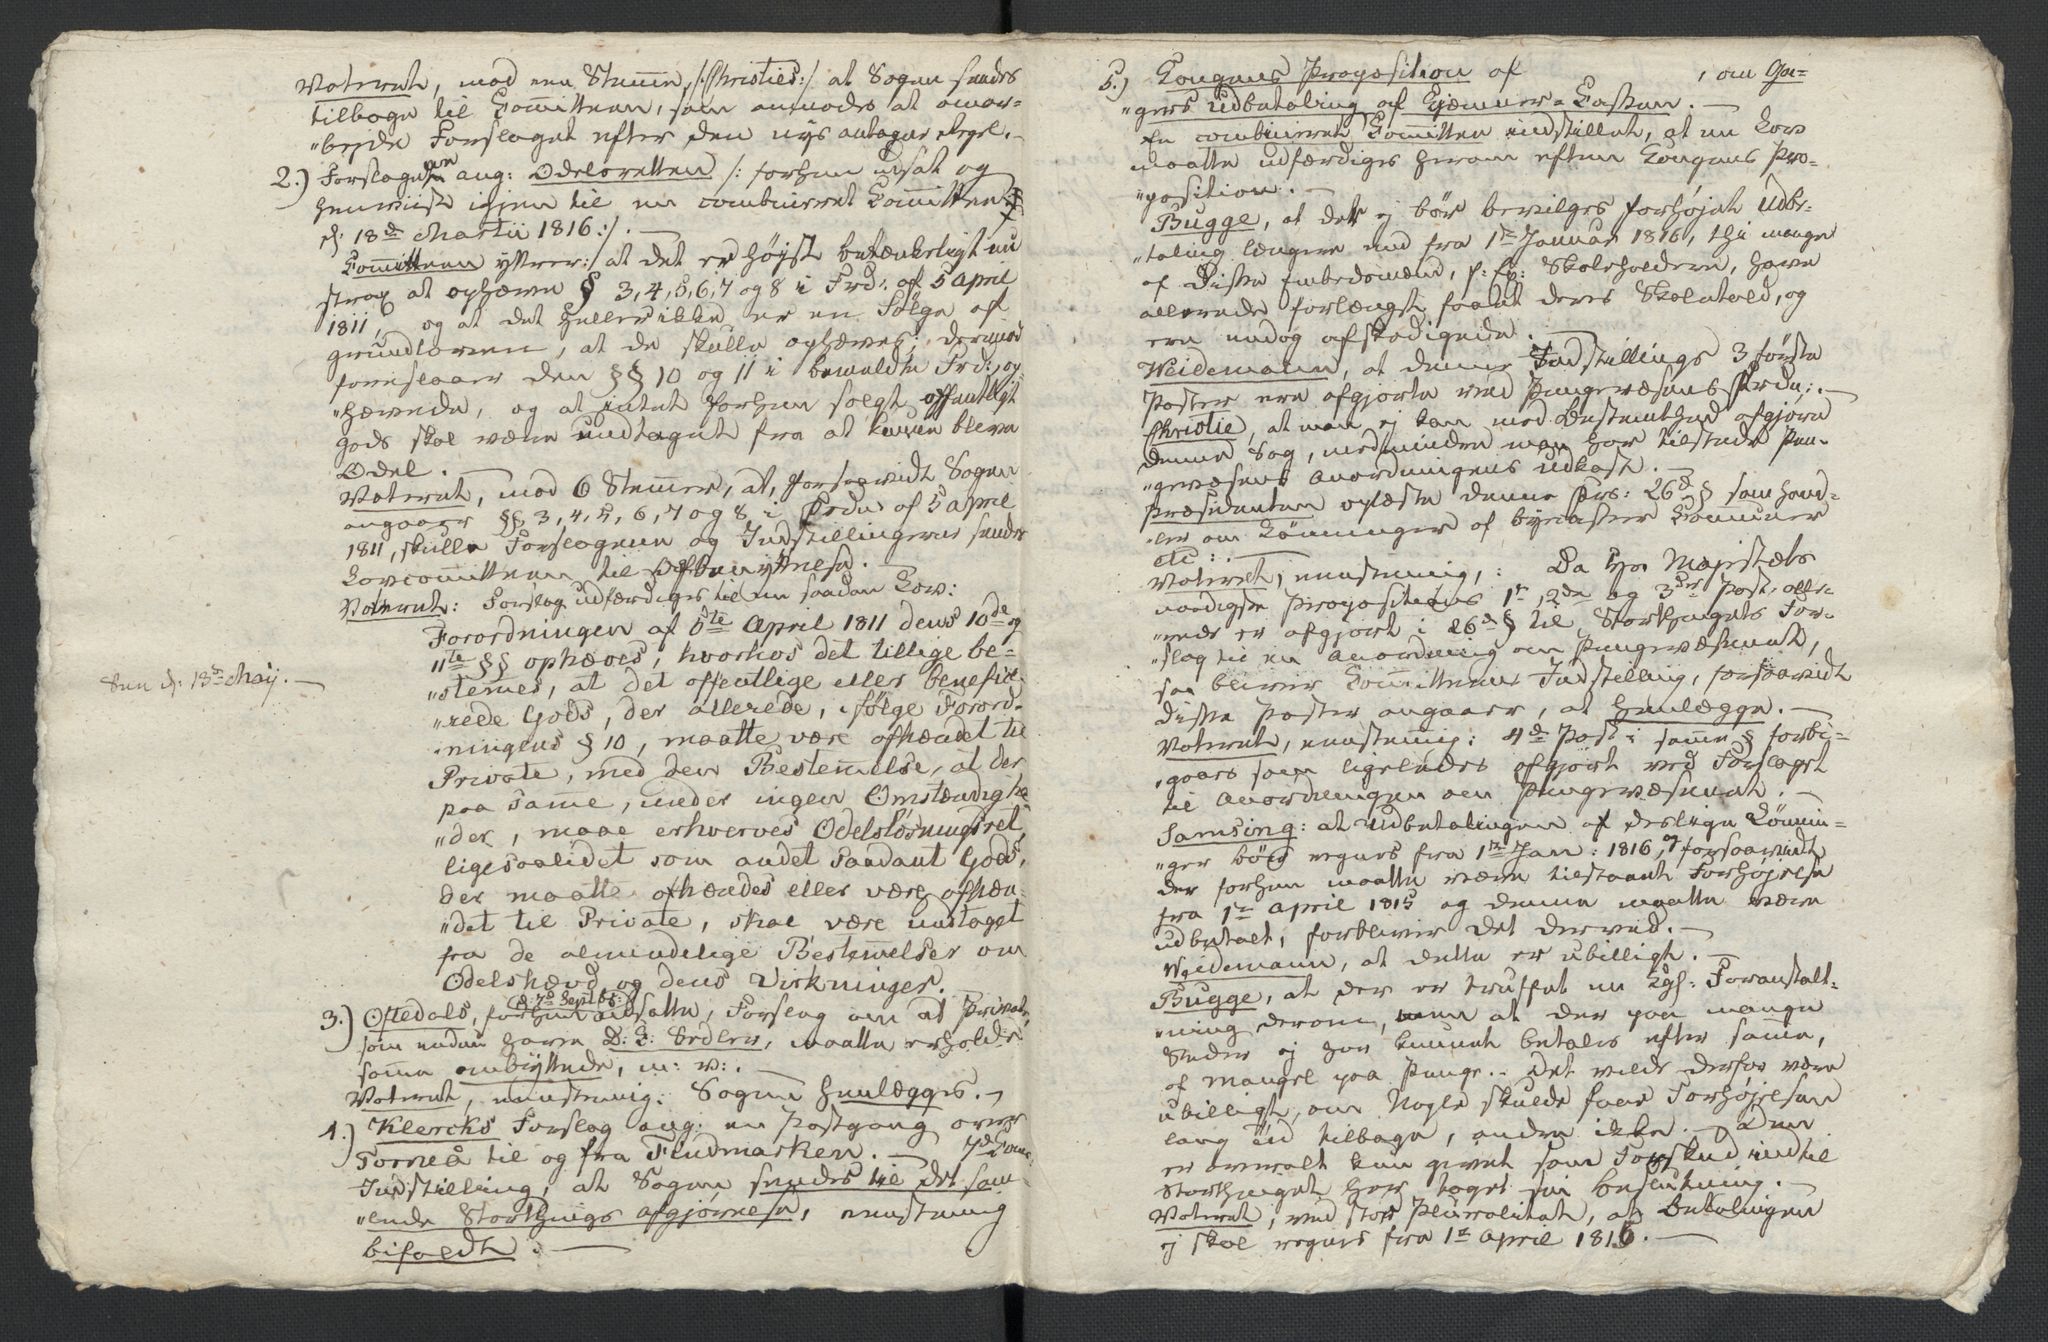 Voteret, mod een Stemme /:Christies:/ at Sagen sendes
tilbage til Committeen, som anmodes at omar-
"bejde Forslaget efter den nys antagne Regel. —
2.) Forslagene ang: Odelsretten /: forhen udsat og
henviist igjen til en combineret Committee
d: 18de Martii 1816:/. —
Committeen yttrer: at det er højst betænkeligt nu
strax at ophæve § 3, 4, 5, 6, 7 og 8 i Frd: af 5 April
1811, og at det heller ikke er en Følge af
Grundloven, at de skulle ophæves; derimod
foreslaaer den §§ 10 og 11 i bemeldte Frd: op-
"hævede, og at intet forhen solgt offentligt
Gods skal være undtaget fra at kunne blive
Odel. —
Voteret, mod 6 Stemmer, at, forsaavidt Sagen
angaaer §§ 3, 4, 5, 6, 7 og 8 i Frdn: af 5 April
1811, skulle Forslagene og Indstillingerne sendes
Lovcommitteen til Afbenyttelse. —
Voteret: Forslag udfærdiges til en saadan Lov:
Forordningen af 5te April 1811 dens 10de og
11te §§ ophæves, hvorhos det tillige be-
"stemmes, at det offentlige eller benefici-
"rede Gods, der allerede, ifølge Forord-
"ningens § 10, maatte være afhændet til
Private, med den Bestemmelse, at der
paa samme, under ingen Omstændighe-
"der, maae erhverves Odelsløsningsret,
ligesaalidet som andet saadant Gods,
der maatte afhændes eller være afhæn-
"det til Private, skal være undtaget
fra de almindelige Bestemmelser om
Odelshævd og dens Virkninger.
Sen d: 13de Maij. —
3.) Oftedals, forhen d: 7de Septbr: udsatte, Forslag om at Private,
som endnu have D: C: Sedler, maatte erholde
samme ombyttede, m: v:. —
Voteret, eenstemmig: Sagen henlægges. —
4.) Klercks Forslag ang: en Postgang over
Torneå til og fra Findmarken. — 7de Com:
Indstilling, at Sagen sendes til det sam-
"lende Storthings afgjørelse, eenstemmig
bifaldt. —
5.) Kongens Proposition af , om Ga-
"gers Udbetaling af Kjæmner-Cassen. —
En combineret Committee indstillet, at en Lov
maatte udfærdiges herom efter Kongens Pro-
"position. —
Bugge, at det ej bør bevilges forhøjet Udbe-
"taling længere end fra 1te Januar 1816, thi mange
af disse Embedsmænd, p: Ex: Skoleholdere, have
allerede forlængst faaet deres Skolehold, og
ere endog afskedigede. —
Weidemann, at denne Indstillings 3 første
Poster ere afgjorte ved Pengevæsens Frdn:. —
Christie, at man ej kan med Bestemthed afgjøre
denne Sag, medmindre man har tilstede Pen-
"gevæsens Anordningens Udkast. —
Præsidenten oplæste denne Frs: 26de § som hand-
"ler om Lønninger af byernes Communer
etc:. —
Voteret, eenstemmig,: Da Hs: Majestæts
naadigste Propositions 1te, 2den og 3die Post, alle-
"rede er afgjort i 26de § til Storthingets For-
"slag til en Anordning om Pengevæsenet,
saa bliver Committeens Indstilling, forsaavidt
disse Poster angaaer, at henlægge. —
Voteret, eenstemmig: 4de Post i samme § forbi-
"gaaes som ligeledes afgjort ved Forslaget
til Anordningen om Pengevæsenet. —
Samsing: at Udbetalingen af deslige Lønnin-
"ger bør regnes fra 1te Jan: 1816, og forsaavidt
der forhen maatte være tilstaaet Forhøjelse
fra 1te April 1815 og denne maatte være
udbetalt, forbliver det derved. —
Weidemann, at dette er ubilligt. —
Bugge, at der er truffet en Kgl: Foranstalt-
"ning derom, men at der paa mange
Steder ej har kunnet betales efter samme,
af Mangel paa Penge. – Det vilde derfor være
ubilligt, om Nogle skulde faae Forhøjelsen
lang Tid tilbage, andre ikke. – Den
er overalt kun givet som Forskud indtil
Storthinget har taget sin Beslutning. —
Voteret, ved stor Pluralitet, at Betalingen
ej skal regnes fra 1te April 1815. —